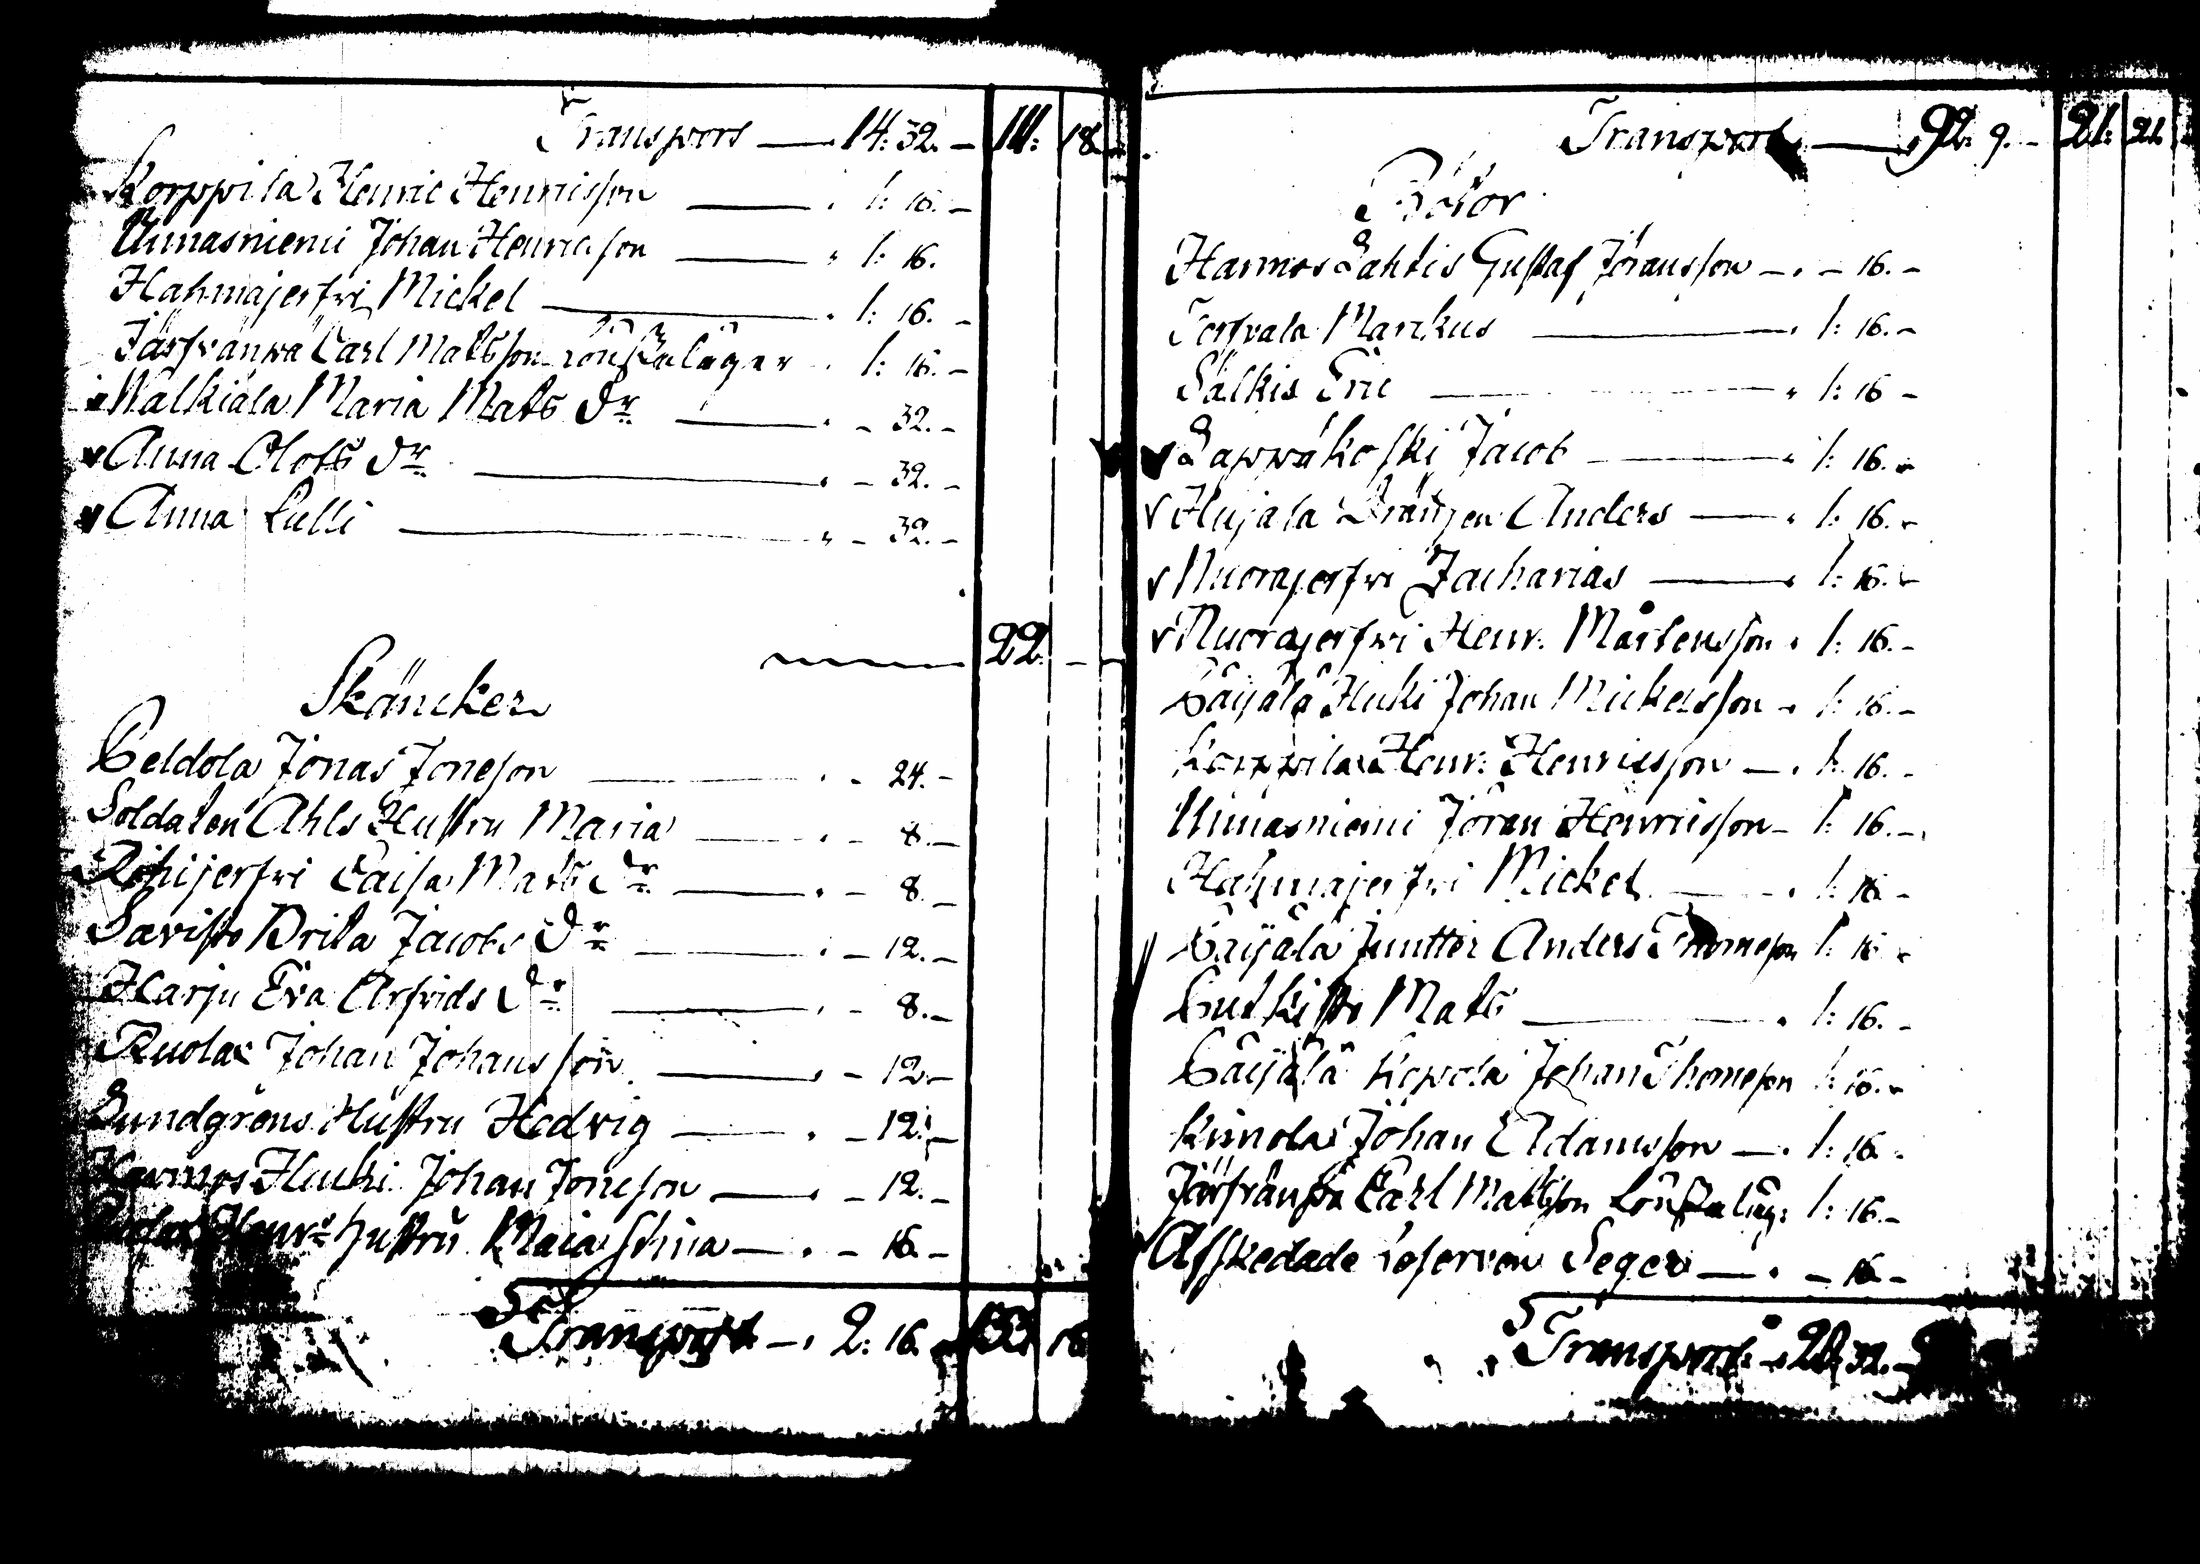 Transport — 14: 32. — 111: 18.
Korppila Henric Henricsson — 1: 16. —
Unnasniemi Johan Henricsson — 1: 16.
Hahmajerfwi Mickel — 1: 16. —
Järfränwä Carl Matsson — 1: 16. —
Walkiala Maria Mats Dr. — 32. —
Anna Olofs Dr. — 32. —
Anna Lulli — 32. —
22. —
Skäncker
Peldola Jonas Joneson — 24. —
Soldaten Ahls Hustru Maria — 8. —
Rihijerfwi Caisa Mats Dr. — 8. —
Savisto Brita Jacobs Dr. — 12. —
Harju Eva Arfvids Dr. — 8. —
Ruola Johan Johansson — 12. —
Lundgrens Hustru Hedvig — 12. —
Harmos Huuki Johan Joneson — 12. —
Henrs. hustru Maia Stina — 16. —
Transport — 2: 16. 133 16
Transport — 92. 9. — 21: 21.
Böter
Harmos Lahtis Gustaf Jöransson — 16. —
Terfvala Marckus — 1: 16. —
Salkis Eric — 1: 16 —
Lapwäkoski Jacob — 1: 16. —
Hujala Drängen Anders — 1: 16. —
Nuorajerfwi Zacharias — 1: 16. —
Nuorajerfwi Henr. Mårtensson 1: 16. —
Päijälä Huki Johan Mickelsson — 1: 16. —
Korppila Henr. Henricsson — 1: 16. —
Unnasniemi Jöran Henricsson — 1: 16. —
Hahmajerfwi Mickel — 1: 16 —
Päijälä Juntter Anders Thomeson 1: 16 —
Putkisto Mats — 1: 16. —
Päijälä Johan Thomeson 1: 16. —
Kimola Johan Adamsson — 1: 16.
Järfränwä Carl Matsson 1: 16. —
Afskedade Seger — 16 —
Transport 32. —